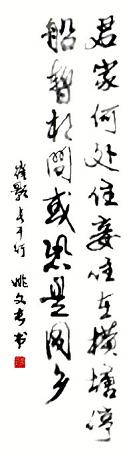 君家何处住妾住在横塘停
船暂相问或恐是同乡
崔颢长干行
姚文奎书